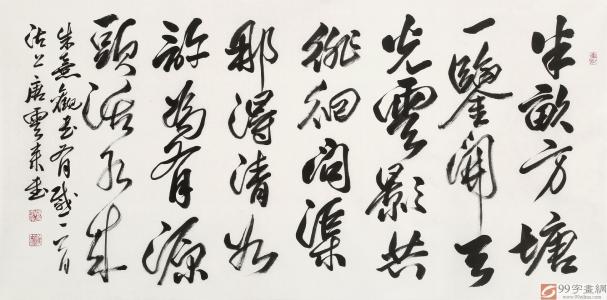 半畝方塘
一鑒開天
光雲影共
徘徊問渠
那得清如
許為有源
頭活水來
朱熹觀書有感一首
沽上唐雲來書
99字畫網